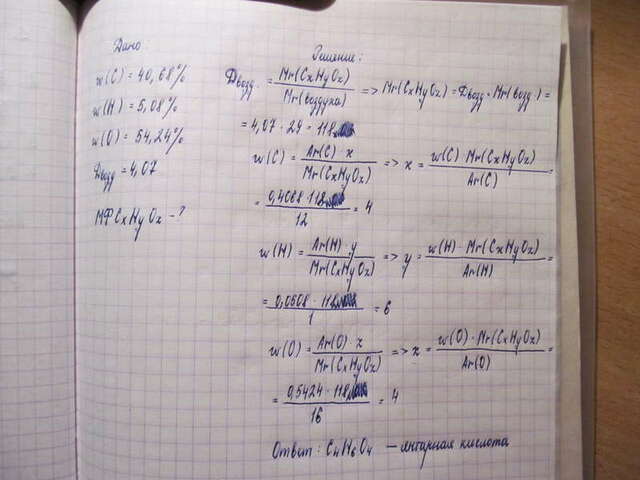 Дано:
w(C) = 40,68%
w(H) = 5,08%
w(O) = 54,24%
Двозд = 4,07
МФ CxHyOz - ?
Решение:
Двозд. = Mr(CxHyOz) / Mr(воздуха) => Mr(CxHyOz) = Двозд · Mr(возд) =
= 4,07 · 29 = 118
w(C) = Ar(C) · x / Mr(CxHyOz) => x = w(C) · Mr(CxHyOz) / Ar(C) =
= 0,4068 · 118 / 12 = 4
w(H) = Ar(H) · y / Mr(CxHyOz) => y = w(H) · Mr(CxHyOz) / Ar(H) =
= 0,0508 · 118 / 1 = 6
w(O) = Ar(O) · z / Mr(CxHyOz) => z = w(O) · Mr(CxHyOz) / Ar(O) =
= 0,5424 · 118 / 16 = 4
Ответ: C4H6O4 — янтарная кислота